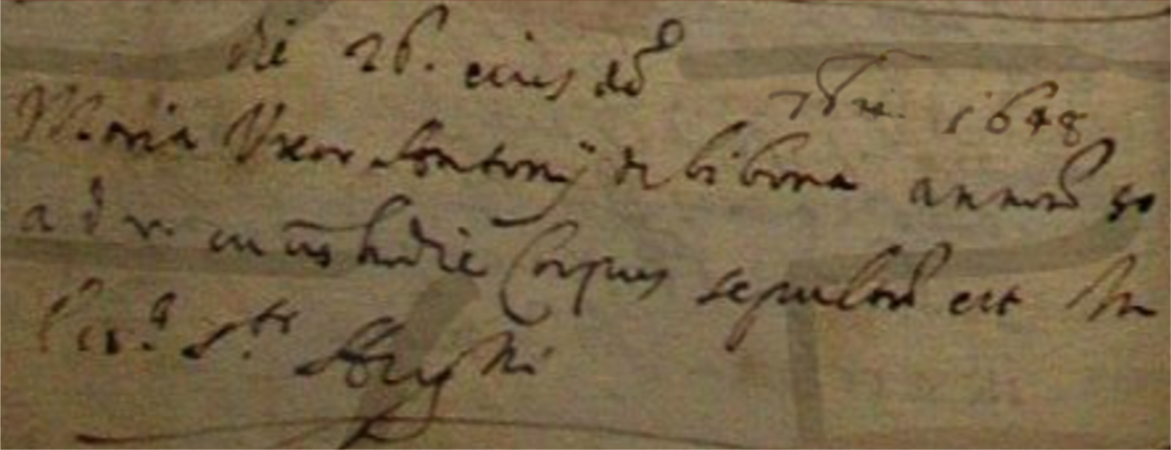 die 26. eiusdē 7bris 1648
Maria Uxor Antonij de bibona annorū 50
a d v. cuius hodie Corpus sepultū est in
Ecc.ᵃ S.ᵗⁱ Aug.ⁿⁱ